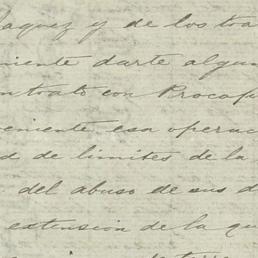 y de los toa
niente darte algun
contrato con Procop
veniente esa operac
d de limites de la
del abuso de sus d
extension de la qu